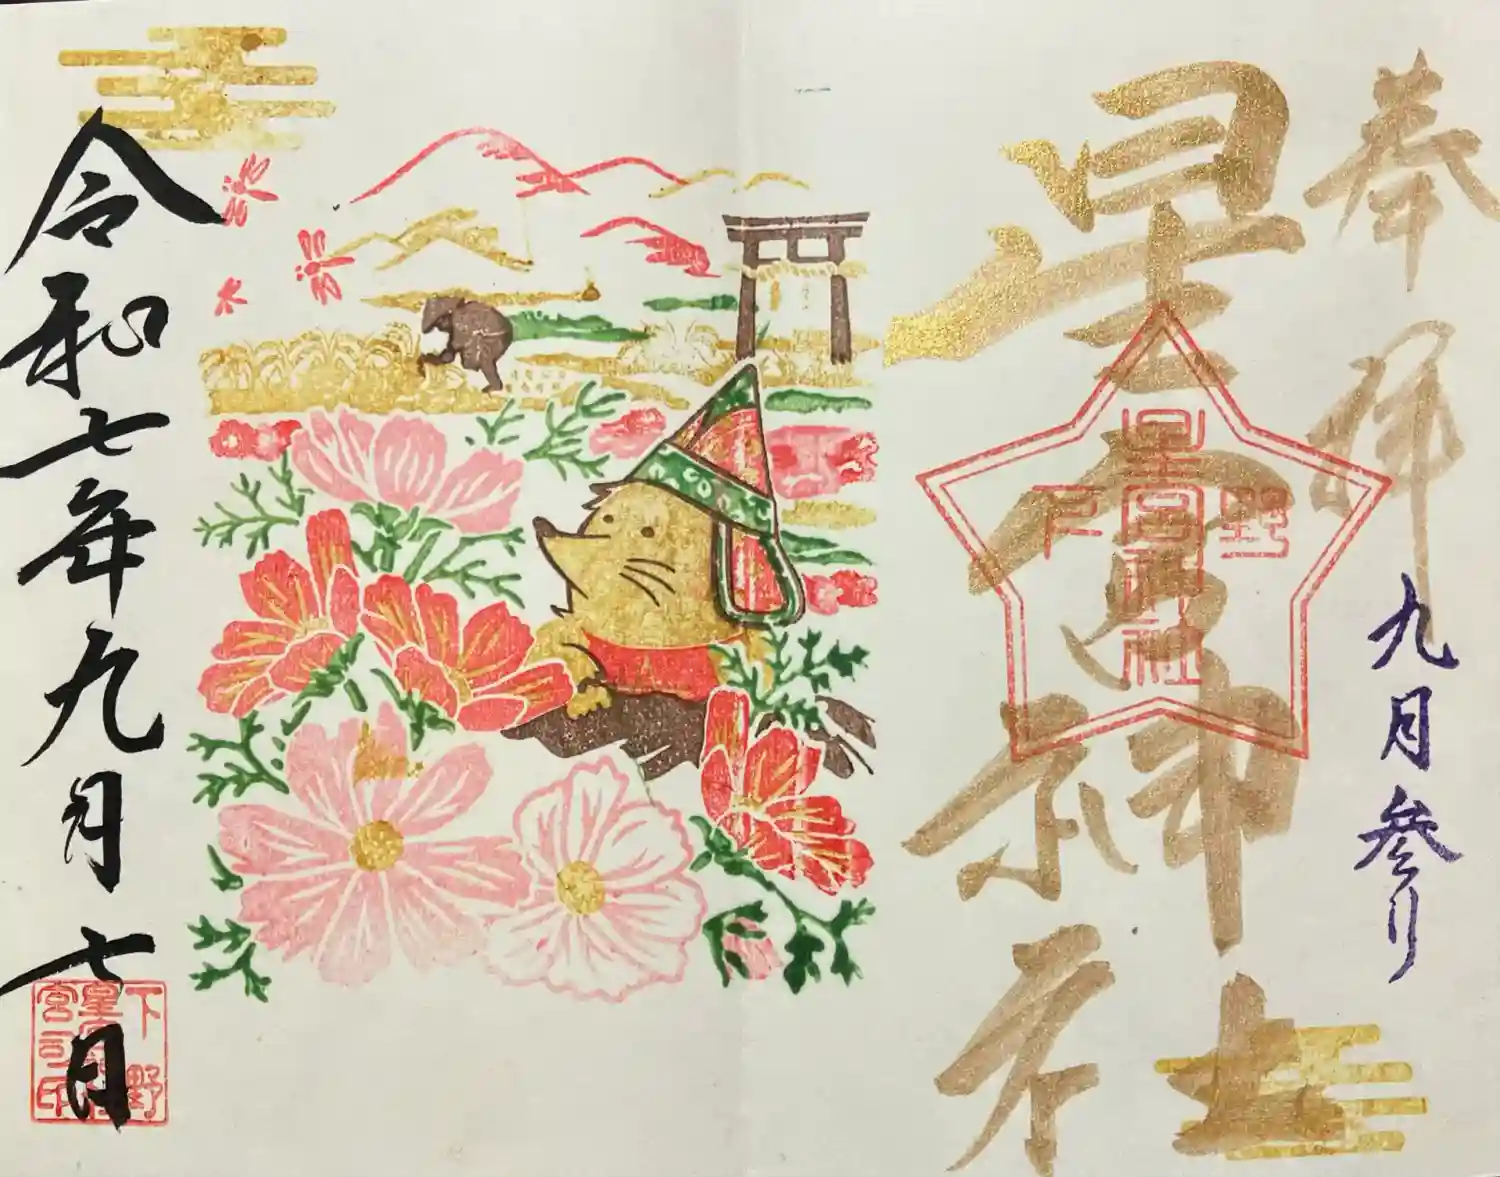 奉拝
九月参り
星宮神社
下野
星宮神社
令和七年九月七日
下野
星宮神社
宮司之印